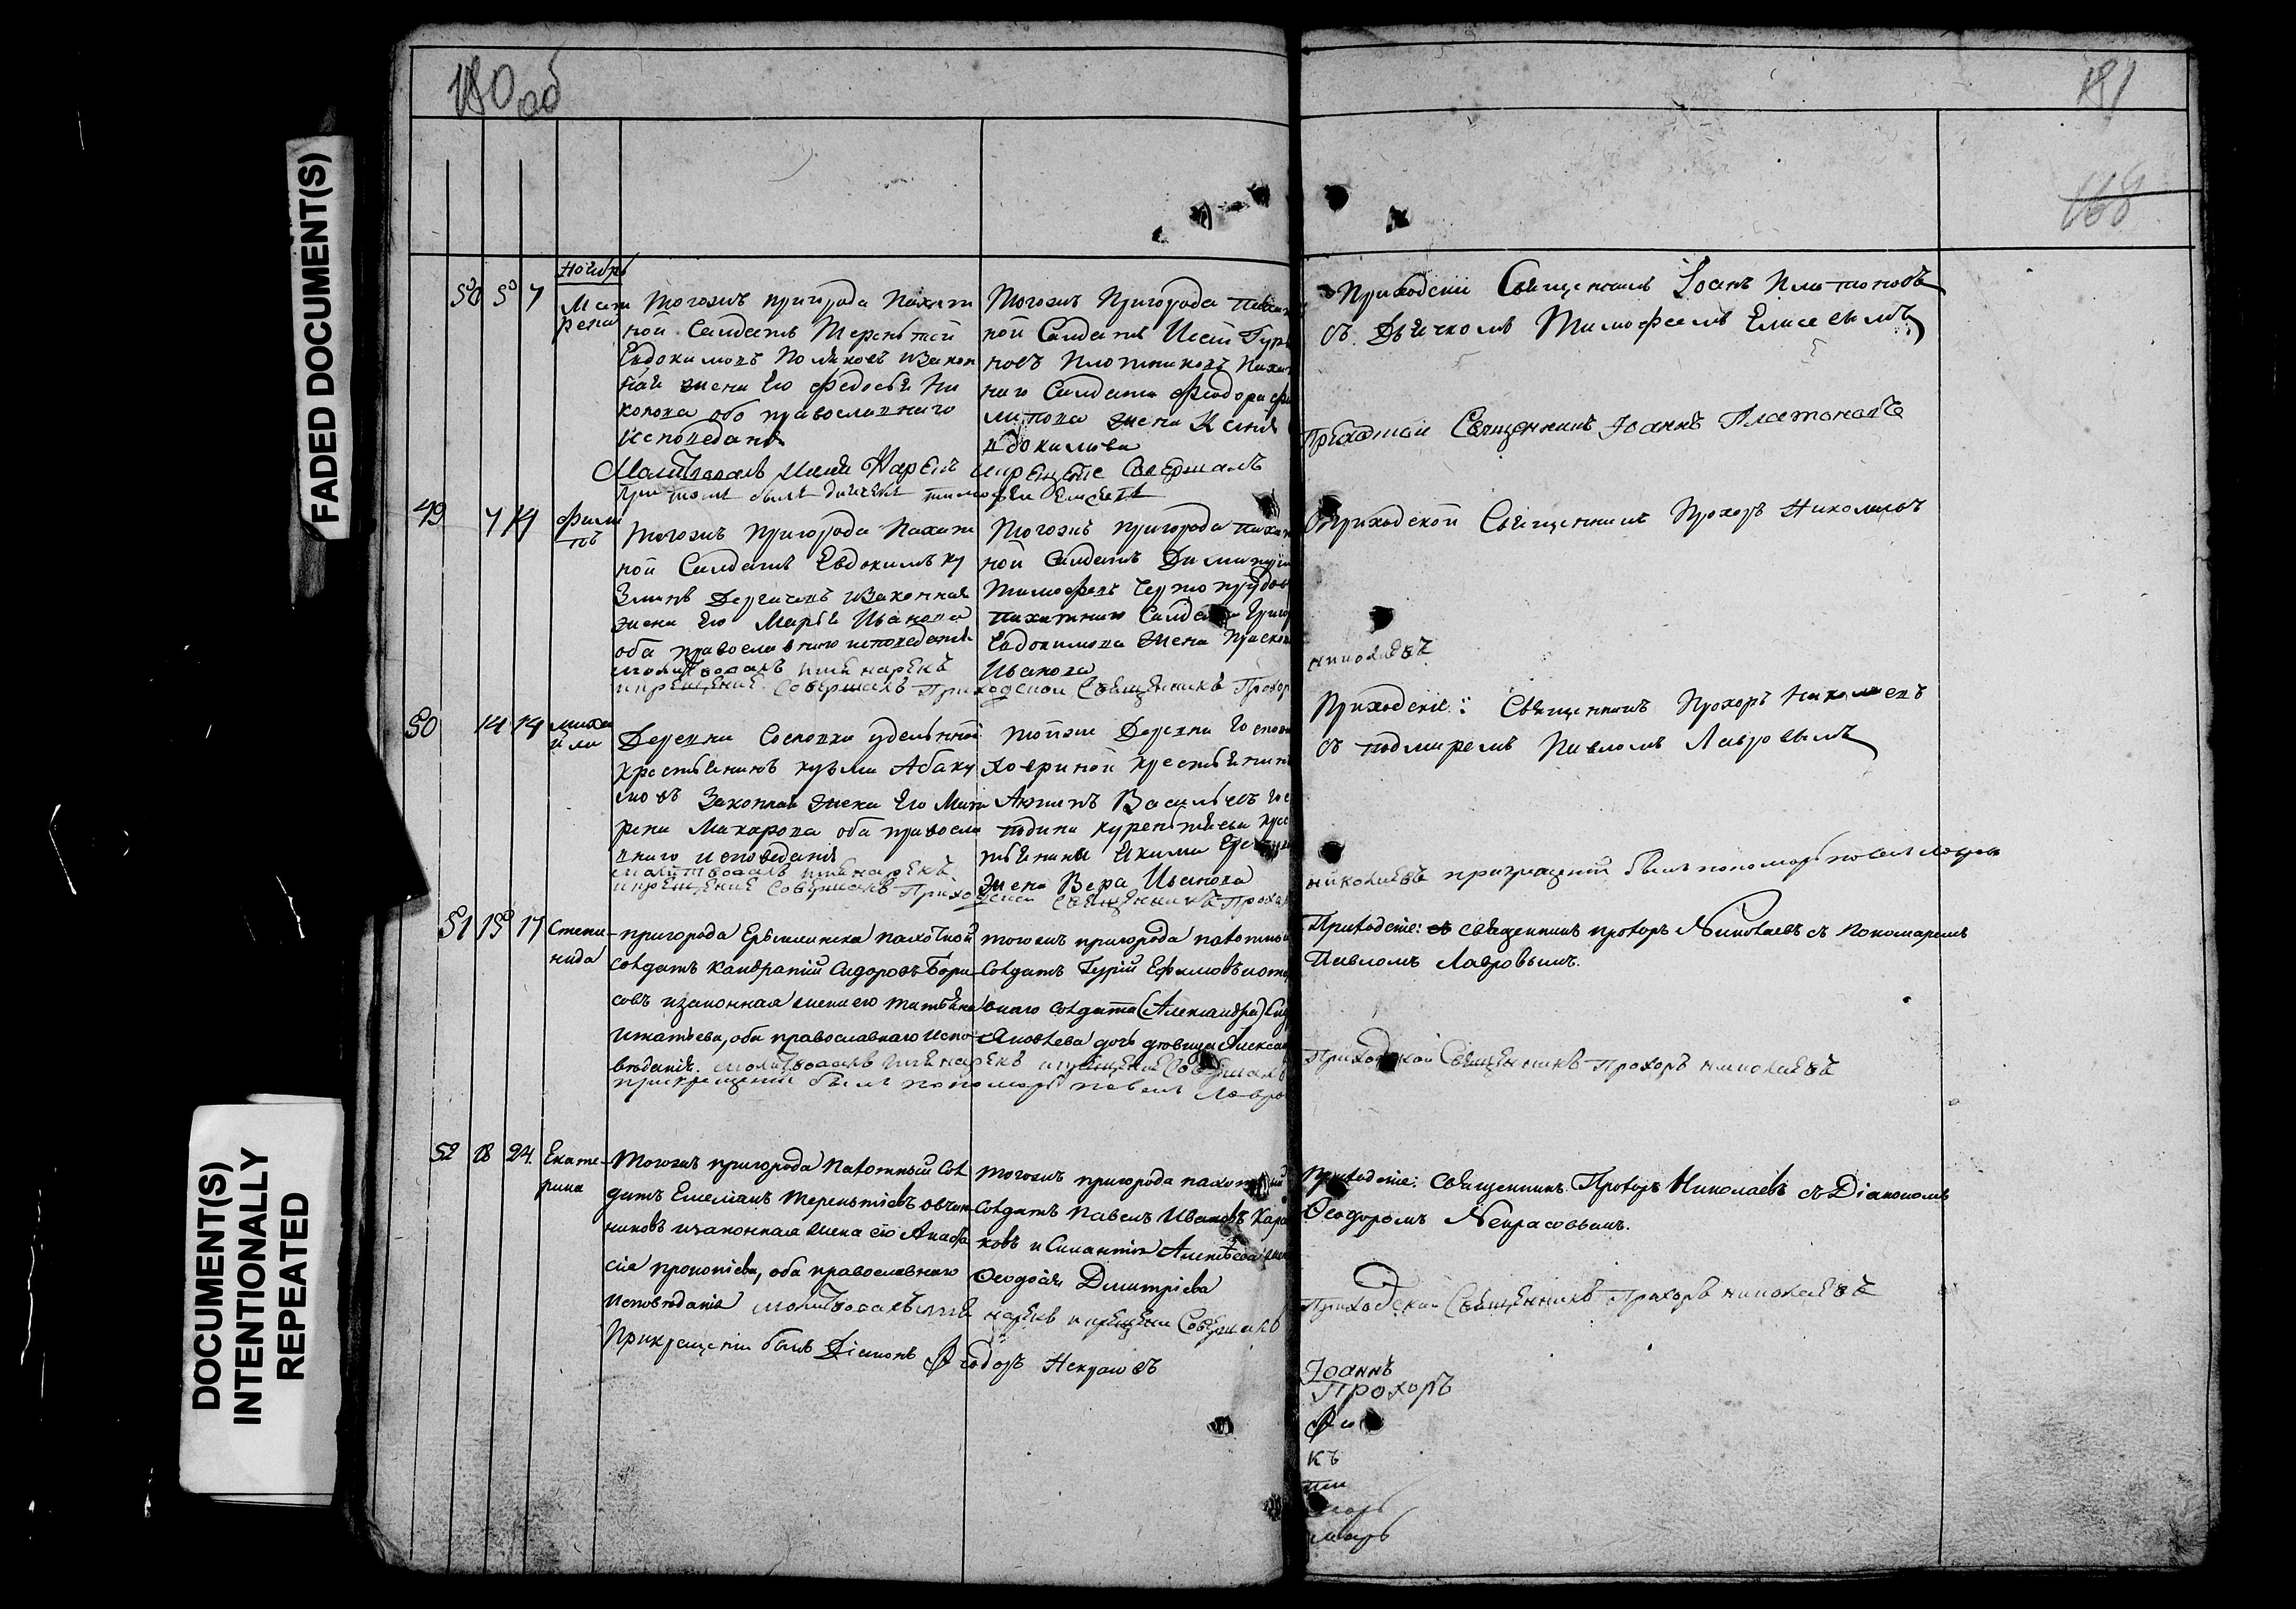 FADED DOCUMENT(S)
DOCUMENT(S)
INTENTIONALLY
REPEATED
180 об
181
168
Ноябрь
50 50 7
Мат
рена
Тогожъ пригорода Пахат
ной Салдатъ Терентей
Евдокимовъ Поляковъ изакон
ная жена Его Федосья Ни
конова оба православнаго
исповедания
Тогожъ Пригорода Пахат
ной Салдатъ
новъ Плотниковъ Пахат
наго Салдата Феодора Фи
липова жена
вдокимова
Молитвовалъ имя Нарекъ икрещение Совершалъ
При томъ былъ дьячекъ тимофеи Елисеевъ
Приходские Священникъ Иоанъ Платоновъ
съ Дьячкомъ Тимофеемъ Елисеевымъ
Приходской Священникъ Иоаннъ Платоновъ
49 7 14
Фили
пъ
Тогожъ Пригорода Пахат
ной Салдатъ Евдокимъ Ку
зминъ изаконная
жена Его Марья Иванова
оба православнаго исповедания
молитвовалъ имя нарекъ
икрещение Совершалъ Приходской Священникъ Прохор
Тогожъ пригорода пахат
ной Салдатъ Димитри
Тимофеевъ
пахатнаго Салдата Григор
Евдокимова жена Праско
Иванова
Приходской Священникъ Прохоръ Николаевъ
николаевъ
50 14 14
михаи
ила
Деревни Сосновки удельной
крестьянинъ кузьма Абаку
мовъ Законная жена Его Мат
рена Макарова оба правосла
внаго исповедания
молитвовалъ имя нарекъ
икрещение Совершалъ Приходской Священникъ Прохор
тойже Деревни Госпожи
Ховриной крестьянинъ
Антипъ Васильевъ гос
подина крес
тьянина Екима
жена Вера Иванова
Приходские: Священникъ Прохоръ Николаевъ
съ Павломъ Лавровымъ
николаевъ прикрещении былъ пономарь павелъ лавров
51 15 17
Степа-
нида
пригорода Ерыклинска пахотной
солдатъ Кандратий Сидоровъ Бори-
совъ изаконная жена его Татьяна
Игнатьева, оба православнаго испо-
вѣданiя. молитвовалъ имя нарекъ икрещение Совершалъ
прикрещении былъ пономарь павелъ Лавро
тогожъ пригорода пахотный
солдатъ Гурiй Ефимовъ
наго солдата (Александра)
Яковлева дочь дѣвица Алекса
Приходские: священникъ прохоръ Николаевъ съ Пономаремъ
Павломъ Лавровымъ.
Приходской Священникъ Прохоръ николаевъ
52 18 24.
Екате-
рина
Тогожъ пригорода Пахотный сол
датъ Емелiанъ Терентiевъ овчин-
никовъ изаконная жена его Анаста
сiя прокопiева, оба православнаго
исповѣданiя молитвовалъ имя нарекъ икрещение Совершалъ
Прикрещении былъ Дiаконъ Феодоръ Некрасовъ
тогожъ пригорода пахотный
солдатъ Павелъ Ивановъ
ковъ и Алексѣева
Ѳеодосiя Дмитрiева
Приходские: Священникъ Прохоръ Николаевъ съ Дiакономъ
Ѳеодоромъ Некрасовымъ.
Приходской Священникъ Прохоръ николаевъ
Иоаннъ
Прохоръ
Фео
къ